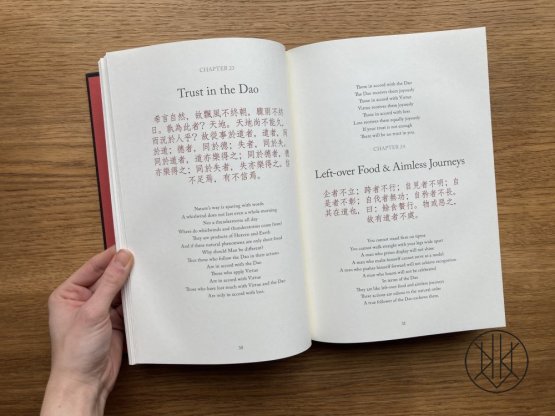 CHAPTER 23
Trust in the Dao
希言自然,故飄風不終朝,驟雨不終
日。孰為此者?天地。天地尚不能久,
而況於人乎?故從事於道者,道者,同於
道;德者,同於德;失者,同於失。
同於道者,道亦樂得之;同於德者,德
亦樂得之;同於失者,失亦樂得之。信
不足焉,有不信焉。
Nature's way is sparing with words
A whirlwind does not last even a whole morning
Nor a thunderstorm all day
Where do whirlwinds and thunderstorms come from?
They are products of Heaven and Earth
And if these natural phenomena are only short lived
Why should Man be different?
Thus those who follow the Dao in their actions
Are in accord with the Dao
Those who apply Virtue
Are in accord with Virtue
Those who have lost touch with Virtue and the Dao
Are truly in accord with loss.
50
Those in accord with the Dao
The Dao receives them joyously
Those in accord with Virtue
Virtue receives them joyously
Those in accord with loss
Loss receives them equally joyously
If your trust is not enough
There will be no trust in you.
CHAPTER 24
Left-over Food & Aimless Journeys
企者不立;跨者不行;自見者不明;自
是者不彰;自伐者無功;自矜者不長。
其在道也,曰:餘食贅行。物或惡之,
故有道者不處。
You cannot stand firm on tiptoe
You cannot walk straight with your legs wide apart
A man who prizes display will not shine
A man who makes himself cannot serve as a model
A man who pushes himself forward will not achieve recognition
A man who boasts will not be celebrated
In terms of the Dao
They are like left-over food and aimless journeys
These actions are odious to the natural order
A true follower of the Dao eschews them.
51